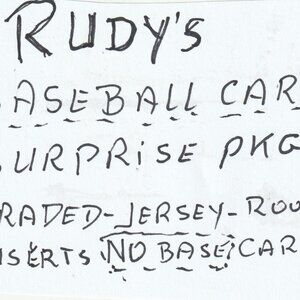 RUDY'S
BASEBALL CAR
SURPRISE PKG
GRADED-JERSEY-ROO
NSERTS NO BASE CAR